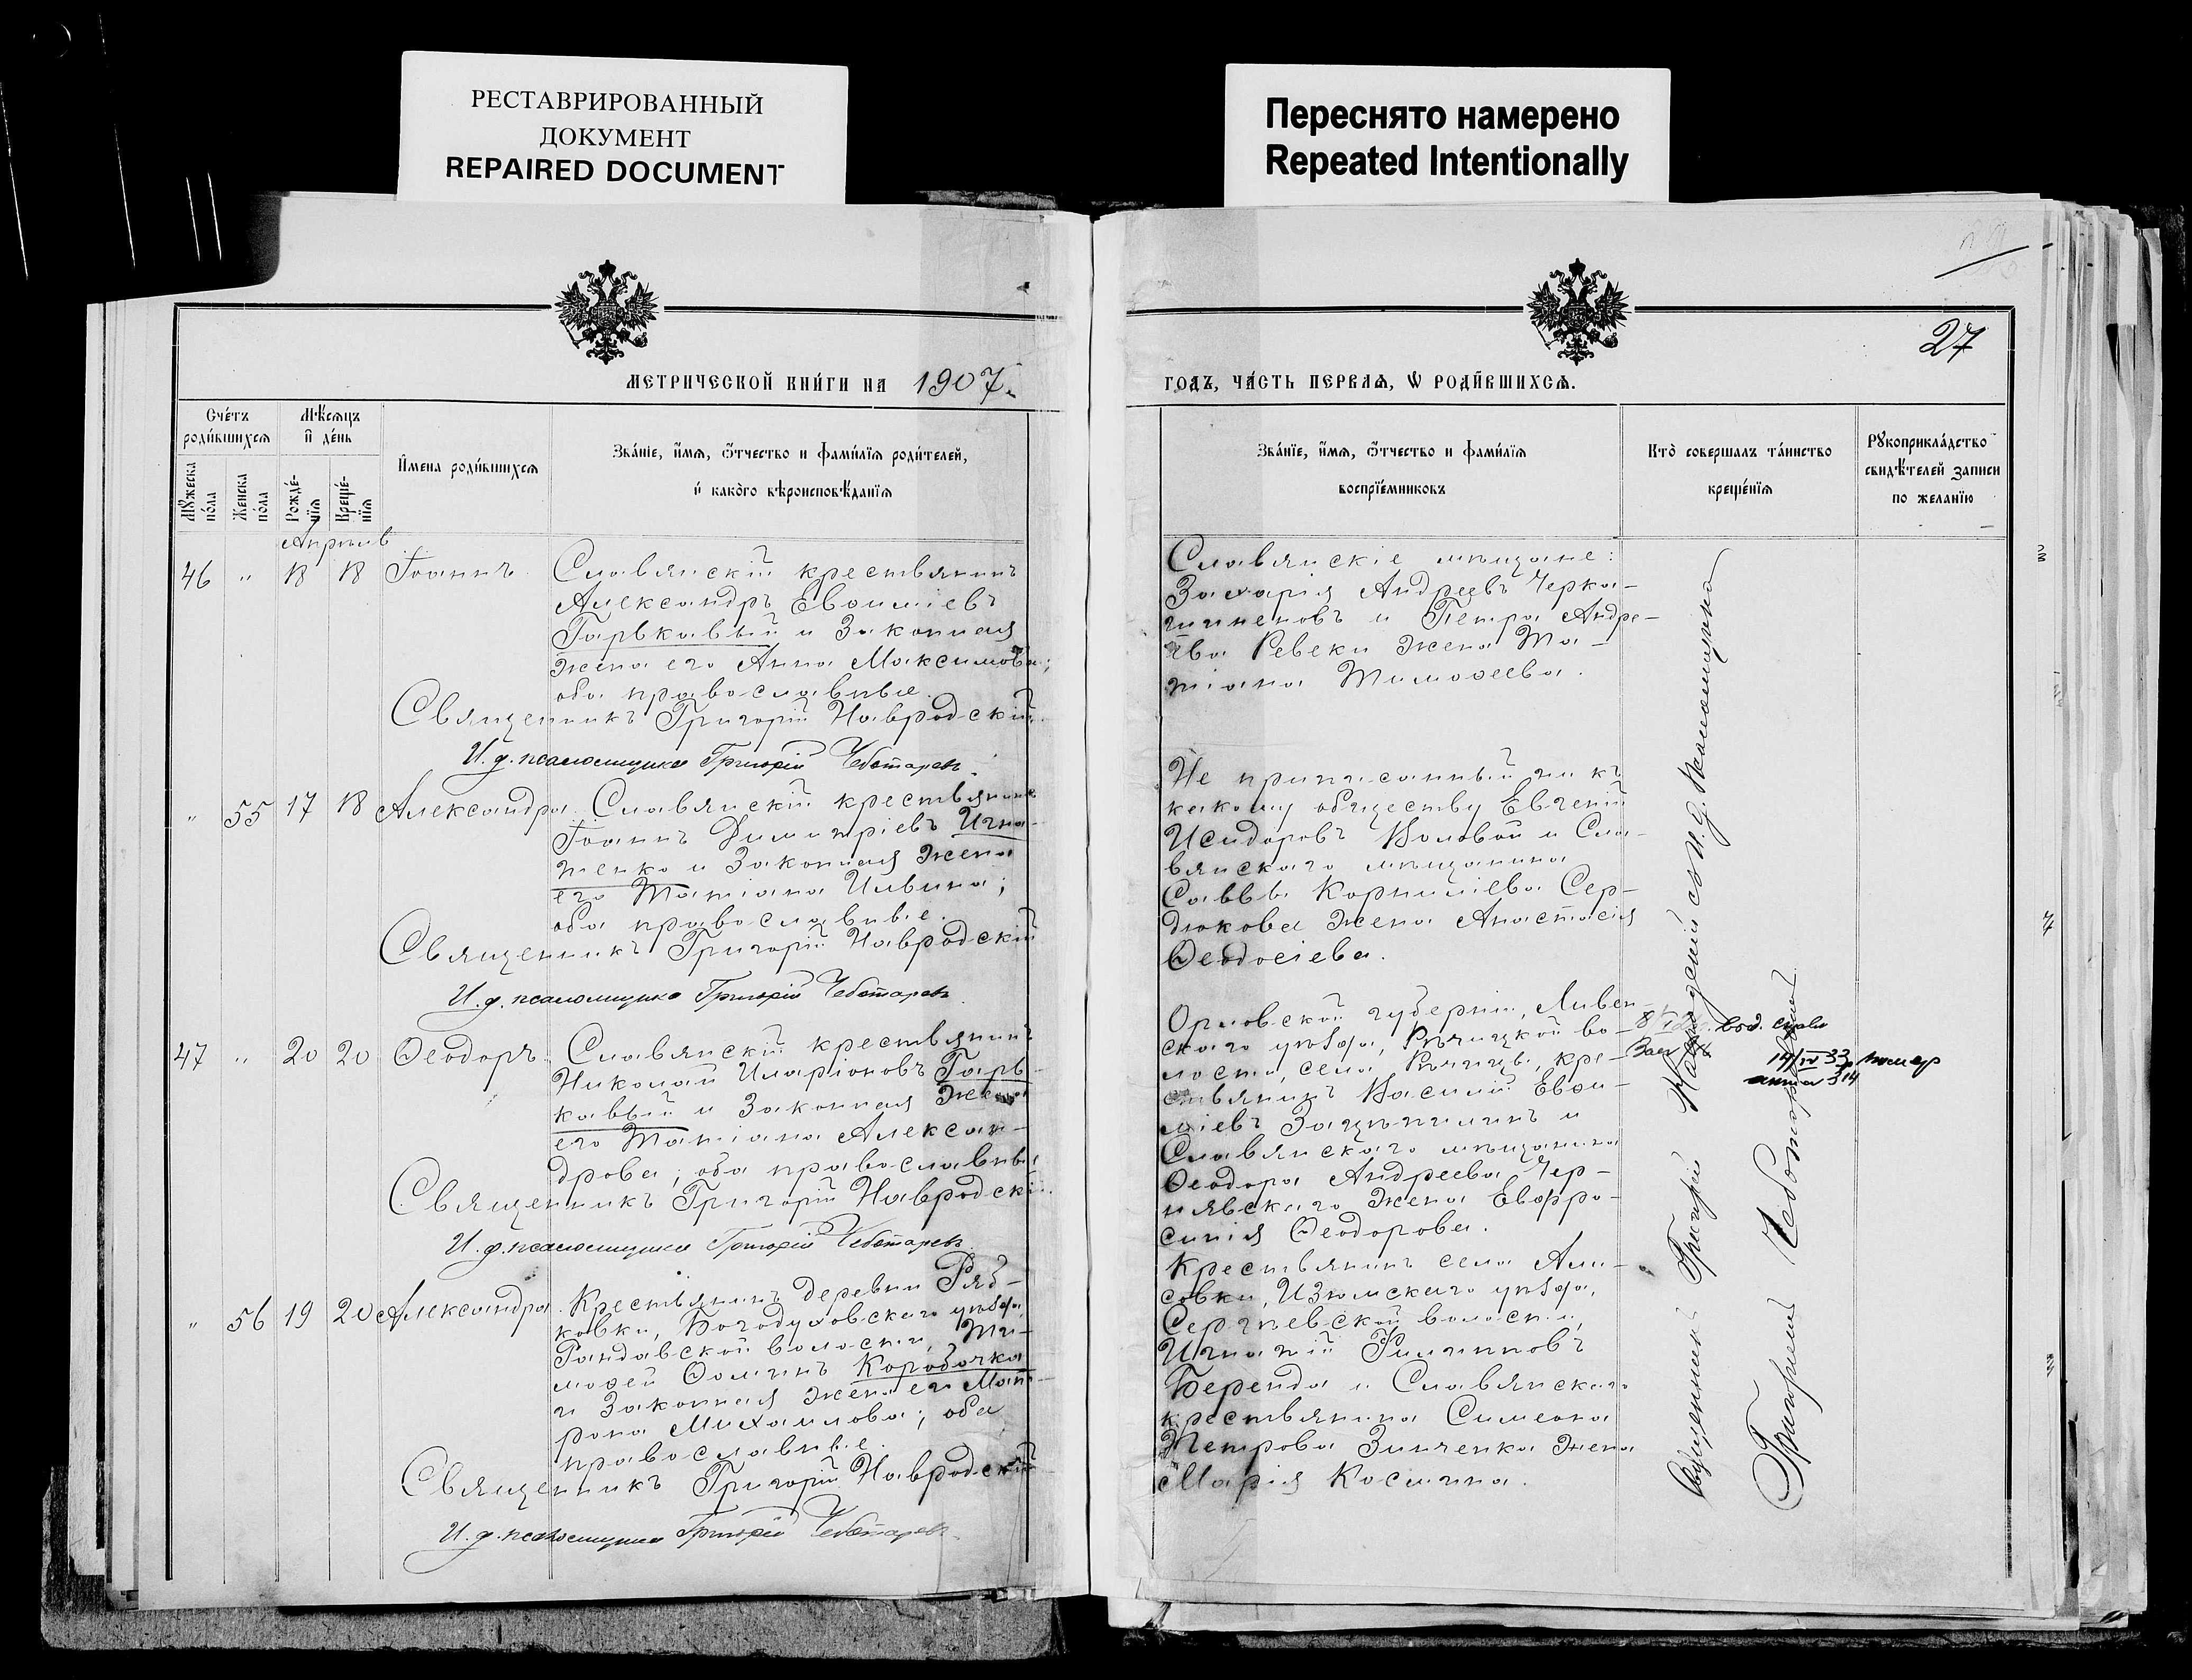 РЕСТАВРИРОВАННЫЙ
ДОКУМЕНТ
REPAIRED DOCUMENT
Переснято намерено
Repeated Intentionally
27
МЕТРИЧЕСКОЙ КНИ́ГИ НА 1907.
ГОДЪ, ЧА́СТЬ ПЕРВАѦ, Ѡ РОДИ́ВШИХСѦ.
Сче́тъ роди́вшихсѧ
Мѣ́сѧцъ и҆ де́нь
Мꙋ́жеска по́ла
Же́нска по́ла
Рожде́-нїѧ
Креще́-нїѧ
И҆мена роди́вшихсѧ
Зва́нїе, и҆́мѧ, ѻ҆́тчество и фами́лїѧ роди́телей,
и҆ како́го вѣроисповѣ́данїѧ
Зва́нїе, и҆́мѧ, ѻ҆́тчество и фами́лїѧ
воспрїе́мниковъ
Кто̀ соверша́лъ та́инство
креще́нїѧ
Рꙋкоприкла́дство
свидѣ́телей записи
по жела́нїю
Апрѣль
46 " 18 18 Іоаннъ
Славянскій крестьянинъ
Александръ Евѳиміевъ
Гарькавый и законная
жена его Анна Максимова;
оба православные.
Священникъ Григорій Навродскій.
И. д. псаломщика Григорій Чеботаревъ.
Славянскіе мѣщане:
Захарія Андреевъ Черка-
шиненовъ и Петра Андре-
ева Ревеки жена Та-
тіана Тимоѳеева.
" 55 17 18 Александра
Славянскій крестьянинъ
Іоаннъ Димитріевъ Игна-
тенко и законная жена
его Татіана Ильина;
оба православные.
Священникъ Григорій Навродскій
И. д. псаломщика Григорій Чеботаревъ
Не приписанный ни къ
какому обществу Евгеній
Исидоровъ Воловой и Сла-
вянскаго мѣщанина
Саввы Корниліева Сер-
дюкова жена Анастасія
Ѳеодосіева.
47 " 20 20 Ѳеодоръ
Славянскій крестьянинъ
Николай Иларіоновъ Гарь-
кавый и законная жена
его Татіана Алексан-
дрова; оба православные
Священникъ Григорій Навродскій.
И. д. псаломщика Григорій Чеботаревъ
Орловской губерніи, Ливен-
скаго уѣзда, Рѣчицкой во-
лости, села Рѣчицы, кре-
стьянинъ Василій Евѳи-
міевъ Зацѣпилинъ и
Славянскаго мѣщанина
Ѳеодора Андреева Чер-
нявскаго жена Евфро-
синія Ѳеодорова.
" 56 19 20 Александра
Крестьянинъ деревни Ряб-
ковки, Богодуховскаго уѣзда,
волости, Ти-
моѳей Ѳоминъ Коробочка
и законная жена его Мат-
рона Михаилова; оба
православные.
Священникъ Григорій Навродскій
И. д. псаломщика Григорій Чеботаревъ.
Крестьянинъ села
Изюмскаго уѣзда,
Сергѣевской волости,
Игнатій Филипповъ
Беренда и Славянскаго
крестьянина Симеона
Петрова Зинченка жена
Марія Космина.
Священникъ Григорій Навродскій съ И. д. псаломщика
Григоріемъ Чеботаревымъ
14/IV 33 помер
314